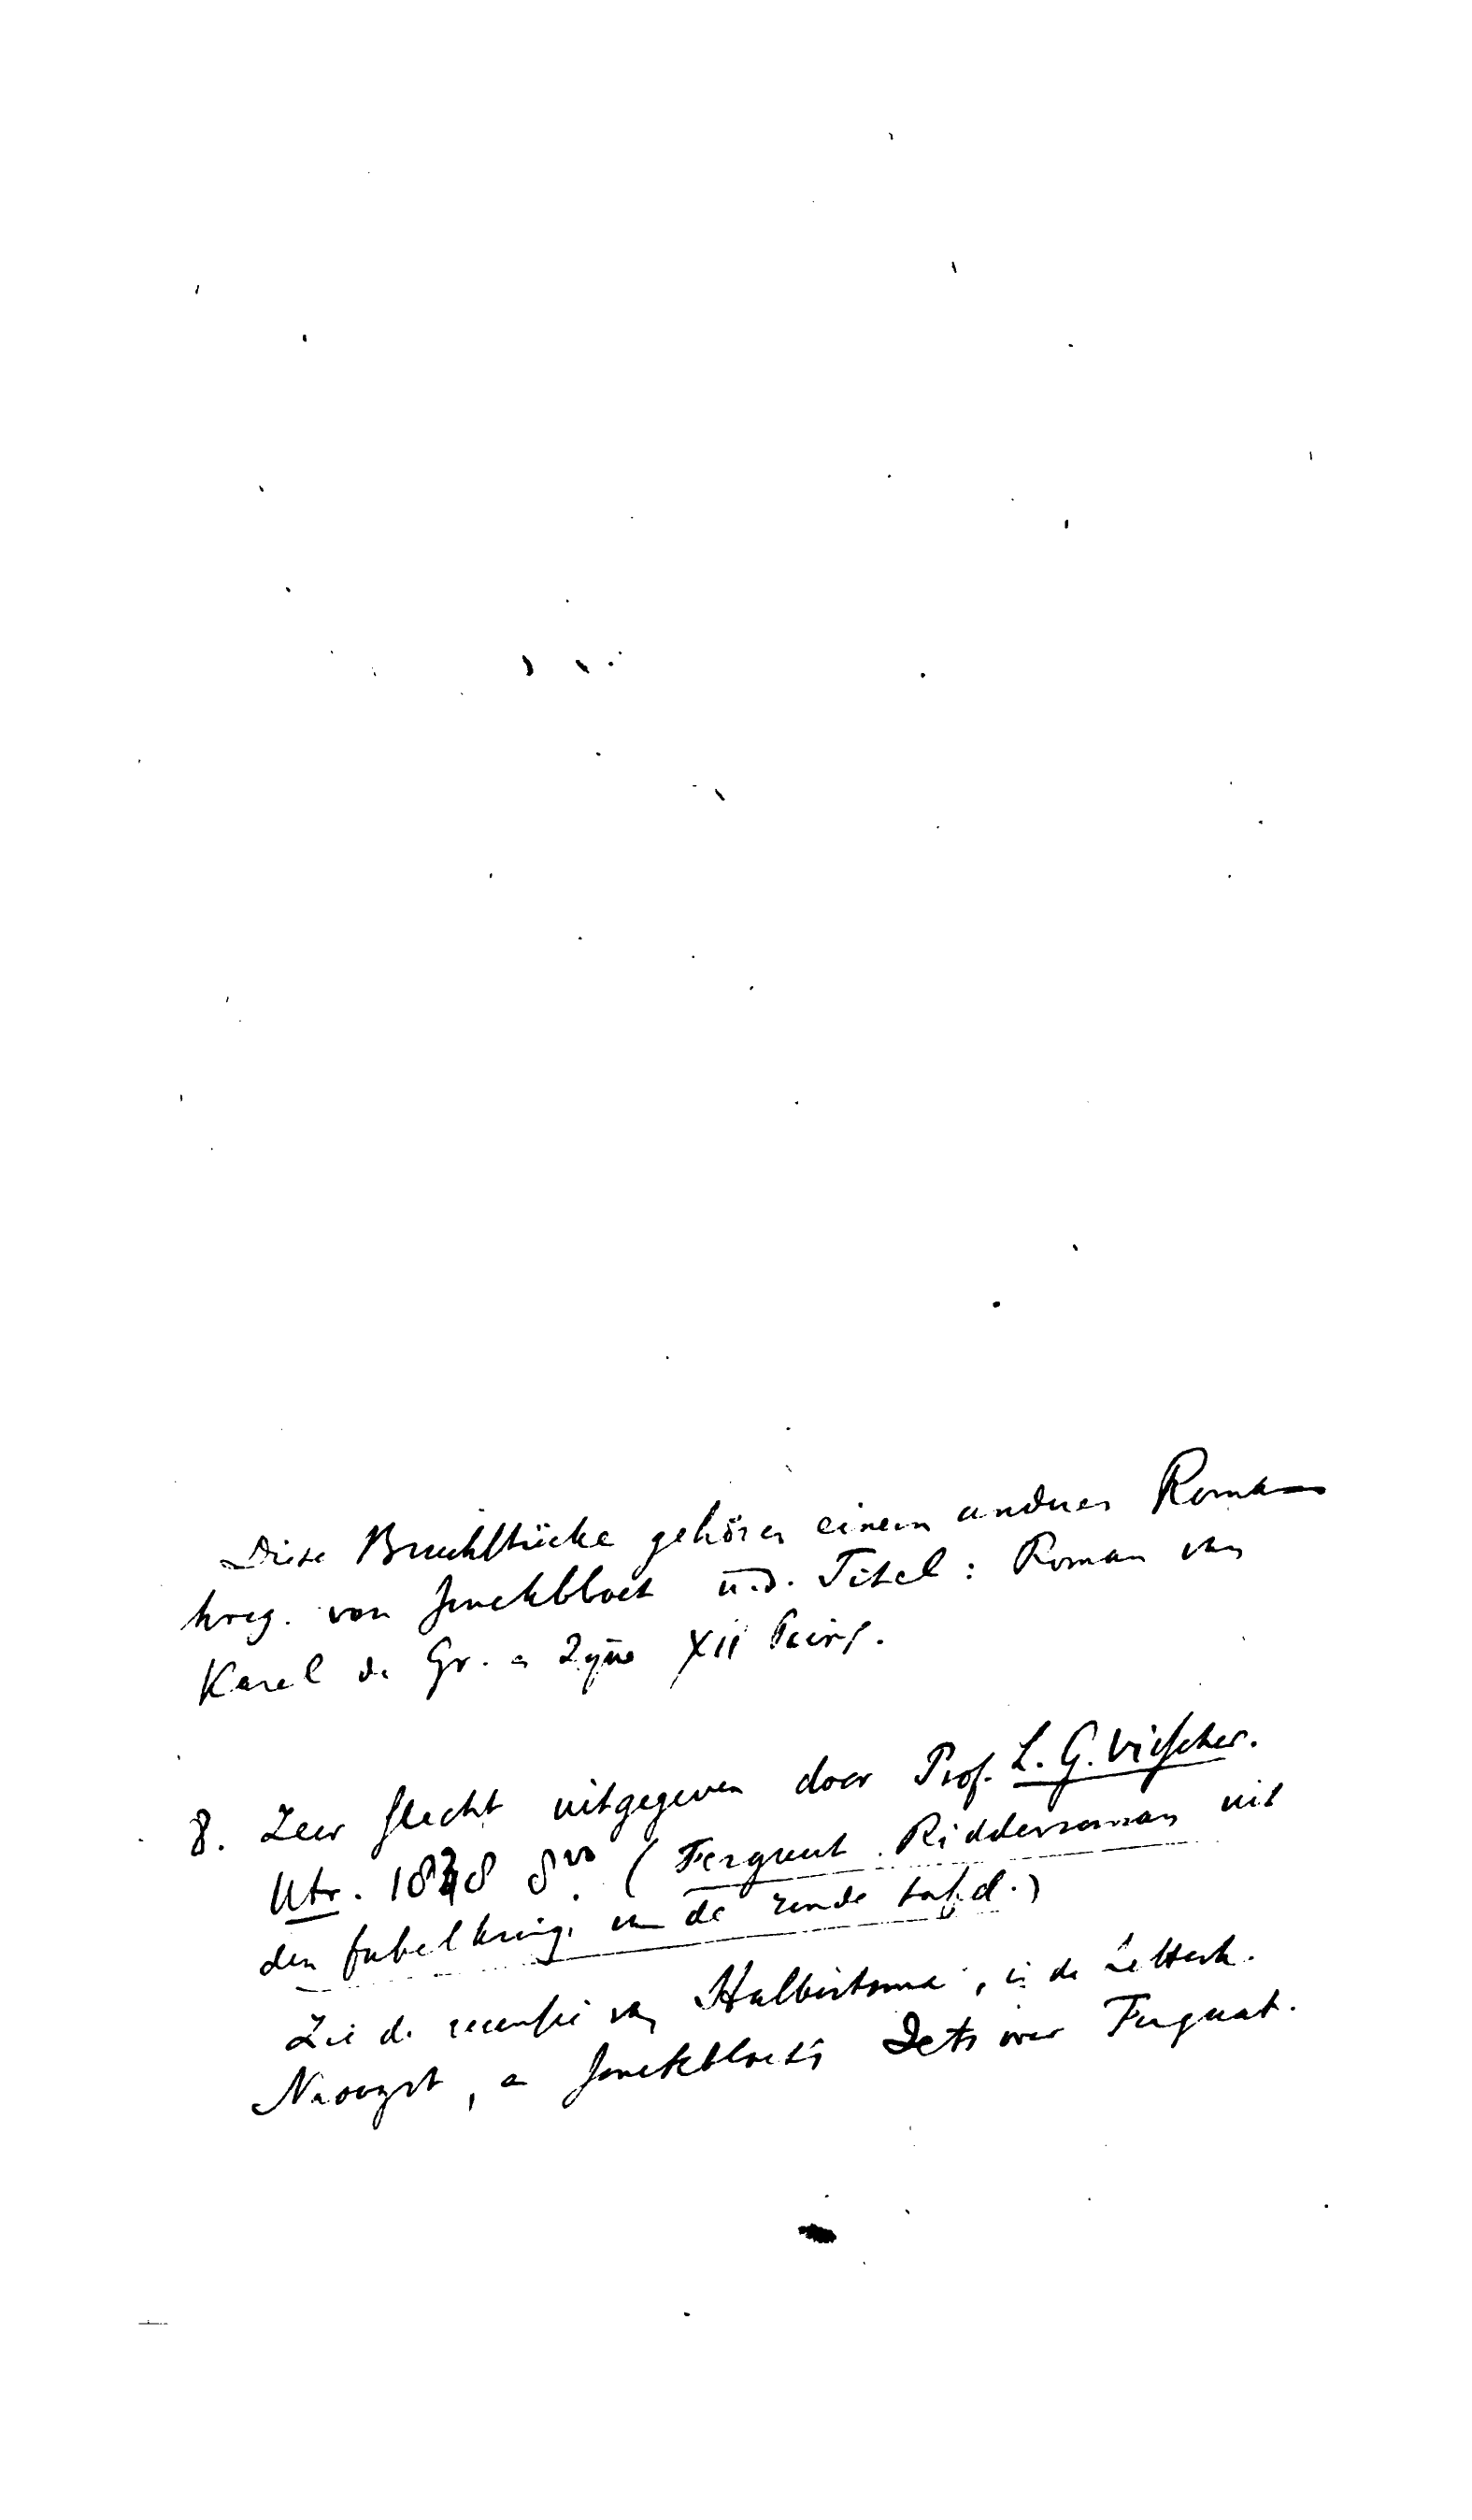 Diese Bruchstücke gehören einem anderen Roman
hreg. von Jonckbloet u. d. Titel: Roman van
Karel de Gr. en Zijne XII Pairs.
8. Zeer slecht uitgegeven door Prof. L. G. Visscher.
Utr. 1838 8vo. (Ferguut. Ridderroman uit
den fabelkring van de ronde tafel.)
Zie de recensie van Halbertsma, in de Letterk.
en Jonckbloet's Iets over Ferguut.